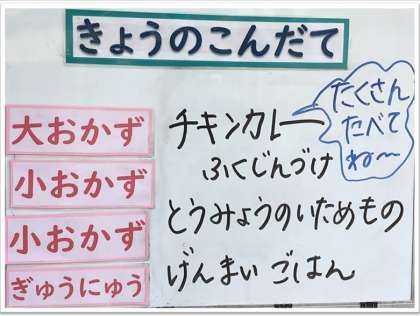 きょうのこんだて
大おかず
チキンカレー
ふくじんづけ
小おかず
とうみょうのいためもの
小おかず
げんまいごはん
ぎゅうにゅう
たくさん
たべて
ね〜